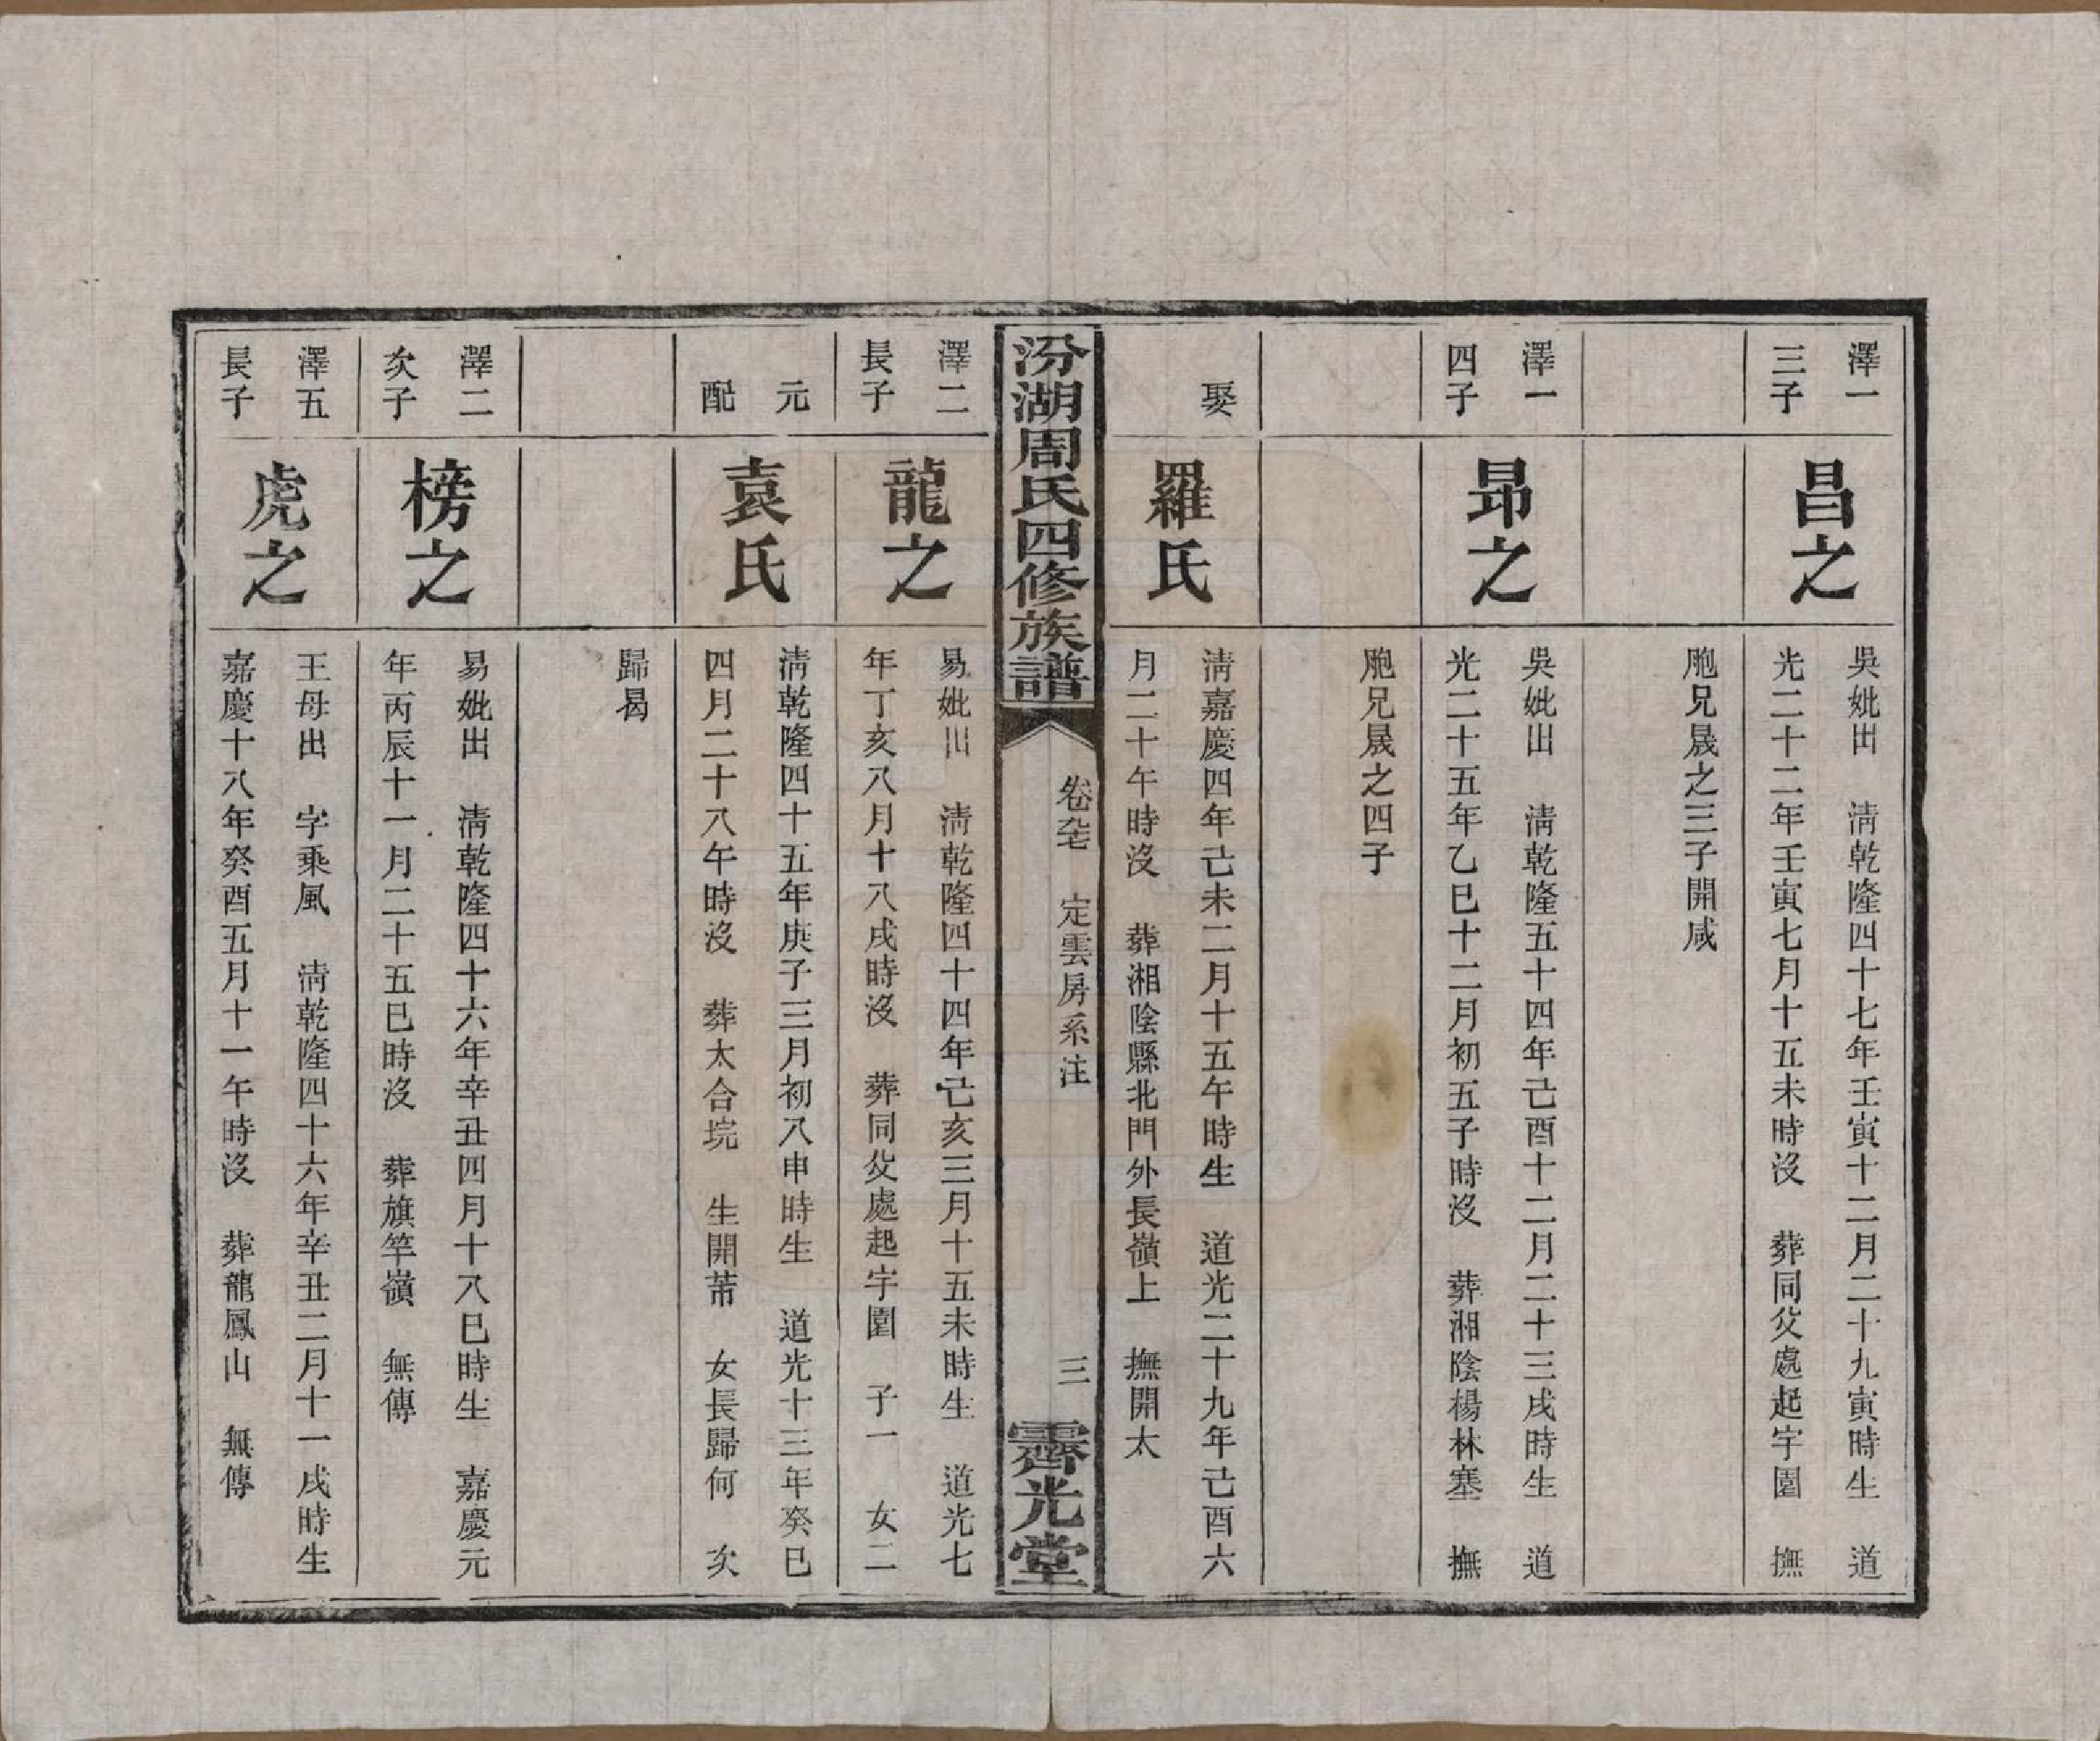 澤一
三子
昌之
吳妣出　淸乾隆四十七年壬寅十二月二十九寅時生　道
光二十二年壬寅七月十五未時沒　葬同父處起字園　撫
胞兄晟之三子開咸
澤一
四子
昂之
吳妣出　淸乾隆五十四年己酉十二月二十三戌時生　道
光二十五年乙巳十二月初五子時沒　葬湘陰楊林塞　撫
胞兄晟之四子
娶
羅氏
淸嘉慶四年己未二月十五午時生　道光二十九年己酉六
月二十午時沒　葬湘陰縣北門外長嶺上　撫開太
汾湖周氏四修族譜
卷　定雲房系注
三
霽光堂
澤二
長子
龍之
易妣出　淸乾隆四十四年己亥三月十五未時生　道光七
年丁亥八月十八戌時沒　葬同父處起字園　子一　女二
元
配
袁氏
淸乾隆四十五年庚子三月初八申時生　道光十三年癸巳
四月二十八午時沒　葬太合垸　生開芾　女長歸何　次
歸易
澤二
次子
榜之
易妣出　淸乾隆四十六年辛丑四月十八巳時生　嘉慶元
年丙辰十一月二十五巳時沒　葬旗竿嶺　無傳
澤五
長子
虎之
王母出　字乘風　淸乾隆四十六年辛丑二月十一戌時生
嘉慶十八年癸酉五月十一午時沒　葬龍鳳山　無傳